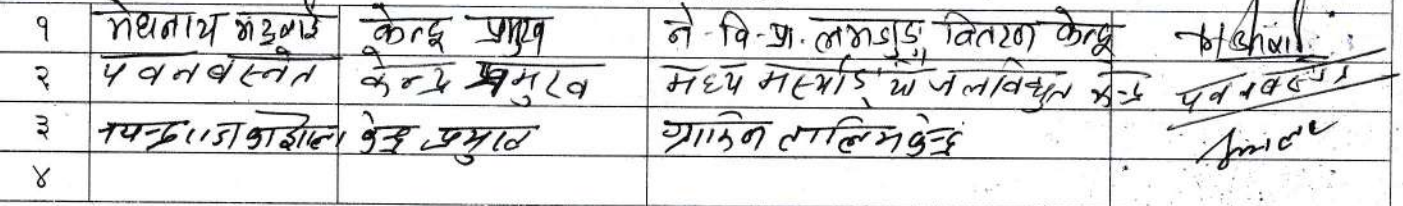 १ मेघनाथ भट्टराई केन्द्र प्रमुख ने.वि.प्रा. लमजुङ वितरण केन्द्र
२ पवन बस्नेत केन्द्र प्रमुख मध्य मर्स्याङ्दी जलविद्युत केन्द्र पवन बस्नेत
३ केन्द्र प्रमुख ग्रामिन तालिम केन्द्र
४